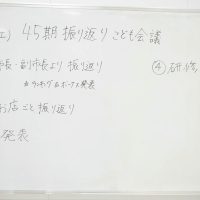 エ) 45期振り返り こども会議
市長・副市長より 振り返り
☆ランキング&ボーナス発表
お店ごと振り返り
発表
④研修